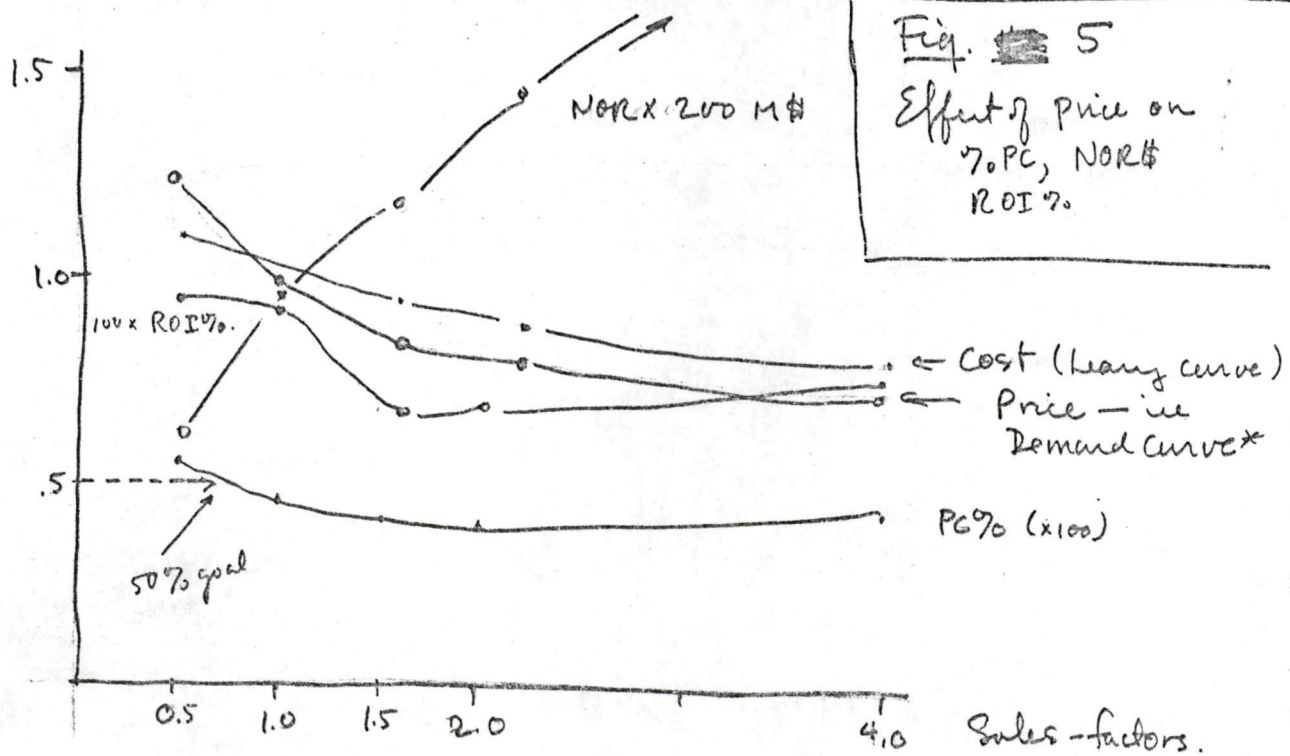 Fig. 5
Effect of price on
% PC, NOR$
ROI %
1.5
NOR x 200 M$
1.0
100 x ROI %.
← Cost (learng curve)
← Price – ie
Demand Curve*
.5
PC% (x100)
50% goal
0.5 1.0 1.5 2.0 4.0 Sales-factors.